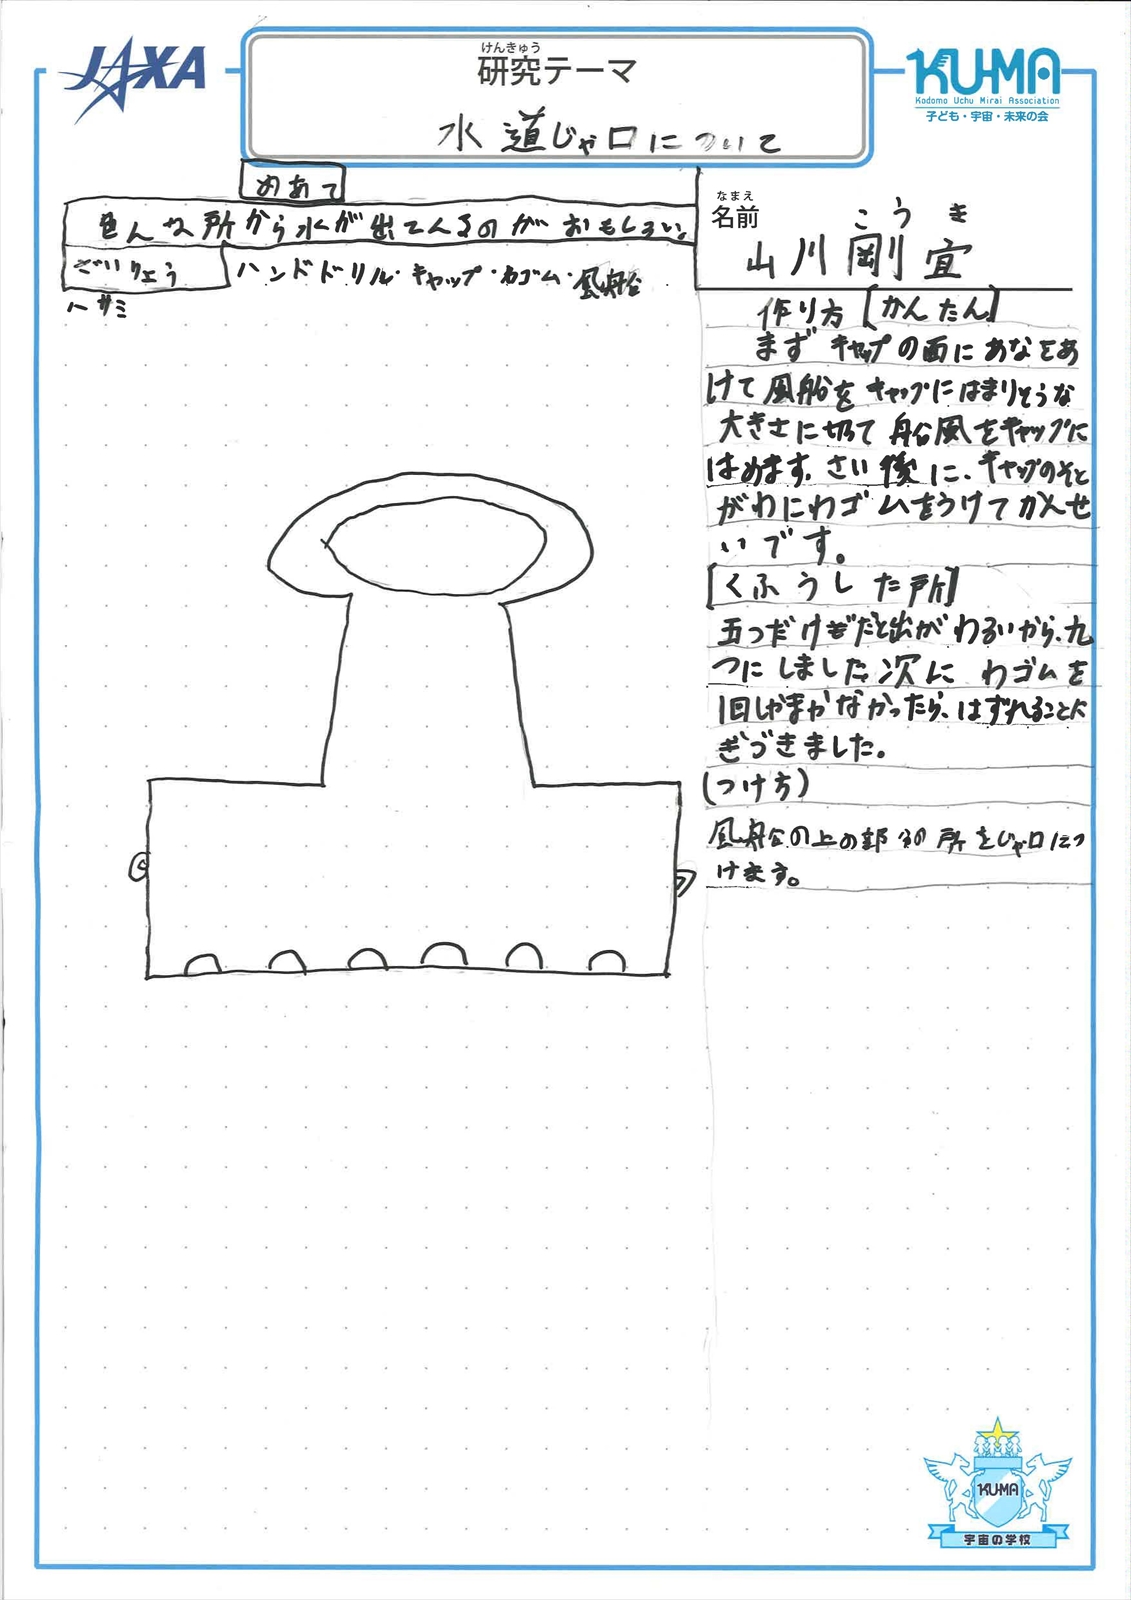 JAXA
けんきゅう
研究テーマ
水道じゃ口について
KU-MA
Kodomo Uchu Mirai Association
子ども・宇宙・未来の会
めあて
色んな所から水が出てくるのがおもしろい。
ざいりょう
ハンドドリル・キャップ・わゴム・風船
ハサミ
なまえ
名前
こうき
山川剛宜
作り方[かんたん]
まずキャップの面にあなをあ
けて風船をキャップにはまりそうな
大きさに切って船風をキャップに
はめます。さい後に、キャップのそと
がわにわゴムをうけてかんせ
いです。
[くふうした所]
五つだけだと出がわるいから、九
つにしました。次にわゴムを
1回しかまかなかったら、はずれることに
きづきました。
(つけ方)
風船の上の部分の所をじゃ口につ
けます。
KU-MA
宇宙の学校